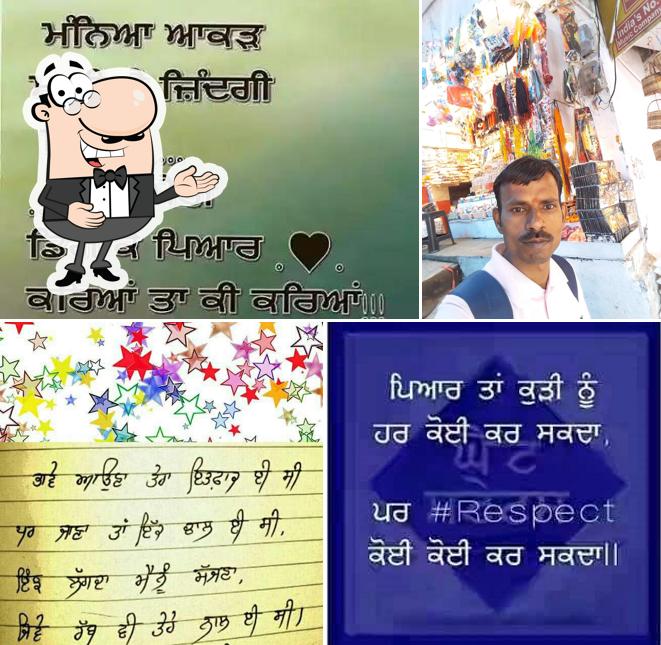 ਮੰਨਿਆ ਆਕੜ
ਜ਼ਿੰਦਗੀ
ਪਿਆਰ
ਕਰਿਆਂ ਤਾ ਕੀ ਕਰਿਆਂ!!!
India's No.
Music Company
ਭਾਵੇ ਆਉਣਾ ਤੇਰਾ ਇਤਫ਼ਾਕ ਈ ਸੀ
ਪਰ ਜਾਣਾ ਤਾਂ ਇੱਕ ਚਾਲ ਈ ਸੀ,
ਇੰਝ ਲੱਗਦਾ ਮੈਨੂੰ ਸੱਜਣਾ,
ਜਿਵੇ ਰੱਬ ਵੀ ਤੇਰੇ ਨਾਲ ਈ ਸੀ।
ਪਿਆਰ ਤਾਂ ਕੁੜੀ ਨੂੰ
ਹਰ ਕੋਈ ਕਰ ਸਕਦਾ,
ਪਰ #Respect
ਕੋਈ ਕੋਈ ਕਰ ਸਕਦਾ||